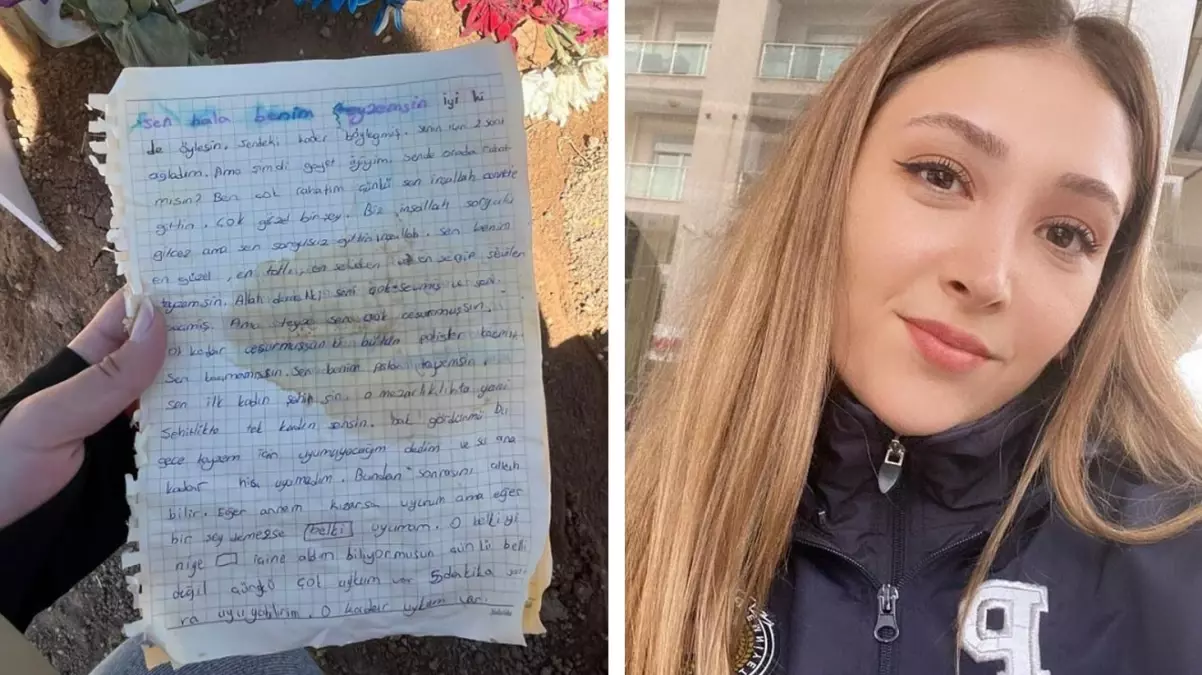 sen hala benim teyzemsin iyi ki
de öylesin. Sendeki kader böyleymiş. Senin için 2 saat
ağladım. Ama şimdi gayet iyiyim. sende orada rahat
mısın? Ben çok rahatım çünkü sen inşallah cennete
gittin. Çok güzel birşey. Biz inşallah sorgulu
gitcez ama sen sorgusuz gittin inşallah. Sen benim
en güzel, en tatlı, en en sevilen
teyzemsin. Allah seni çok sevmiş ki seni
seçmiş. Ama teyze sen çok cesurmuşsun.
O kadar cesurmuşsun ki bütün polisler kaçmış
Sen kaçmamışsın. Sen benim teyzemsin.
Sen ilk kadın şehitsin. o mezarlıklıhta yani
Şehitlikte tek kadın sensin. bak gördünmü bu
gece teyzem için uyumayacağım dedim ve şu ana
kadar hiç uyumadım. Bundan sonrasını allah
bilir. Eğer annem kızarsa uyurum ama eğer
bir şey demezse belki uyumam. O belkiyi
niye içine aldım biliyormusun çünkü belli
değil çünkü çok uykum var 5 dakika son
ra uyuyabilirim. O kadar uykum var.
P